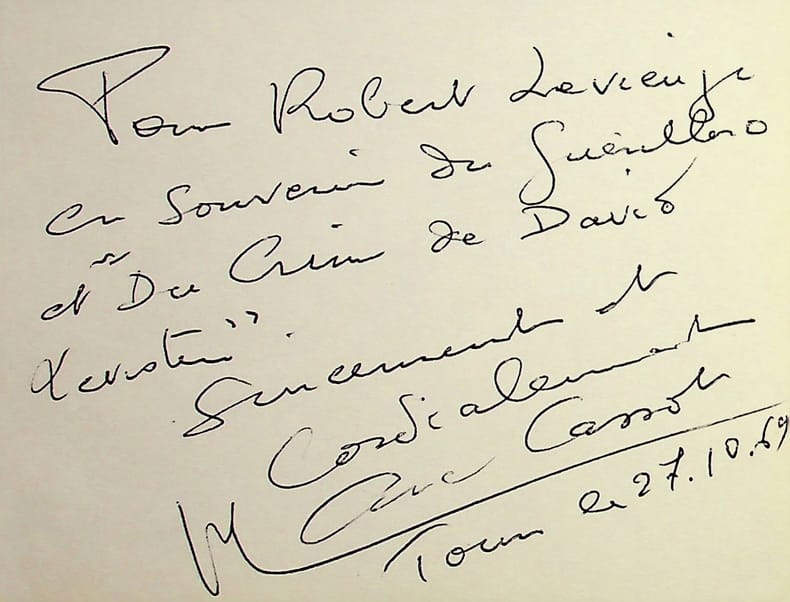 Pour Robert Levieuge
en souvenir du Guérillero
et "Du Crime de David
Levistein".
Sincèrement et
Cordialement
Marc Cassot
Tours le 27.10.69